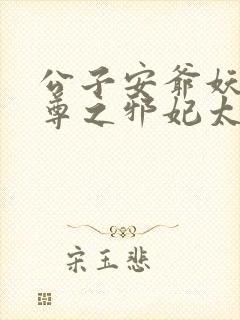 公子安爷妖
尊之邪妃太
宋玉悲